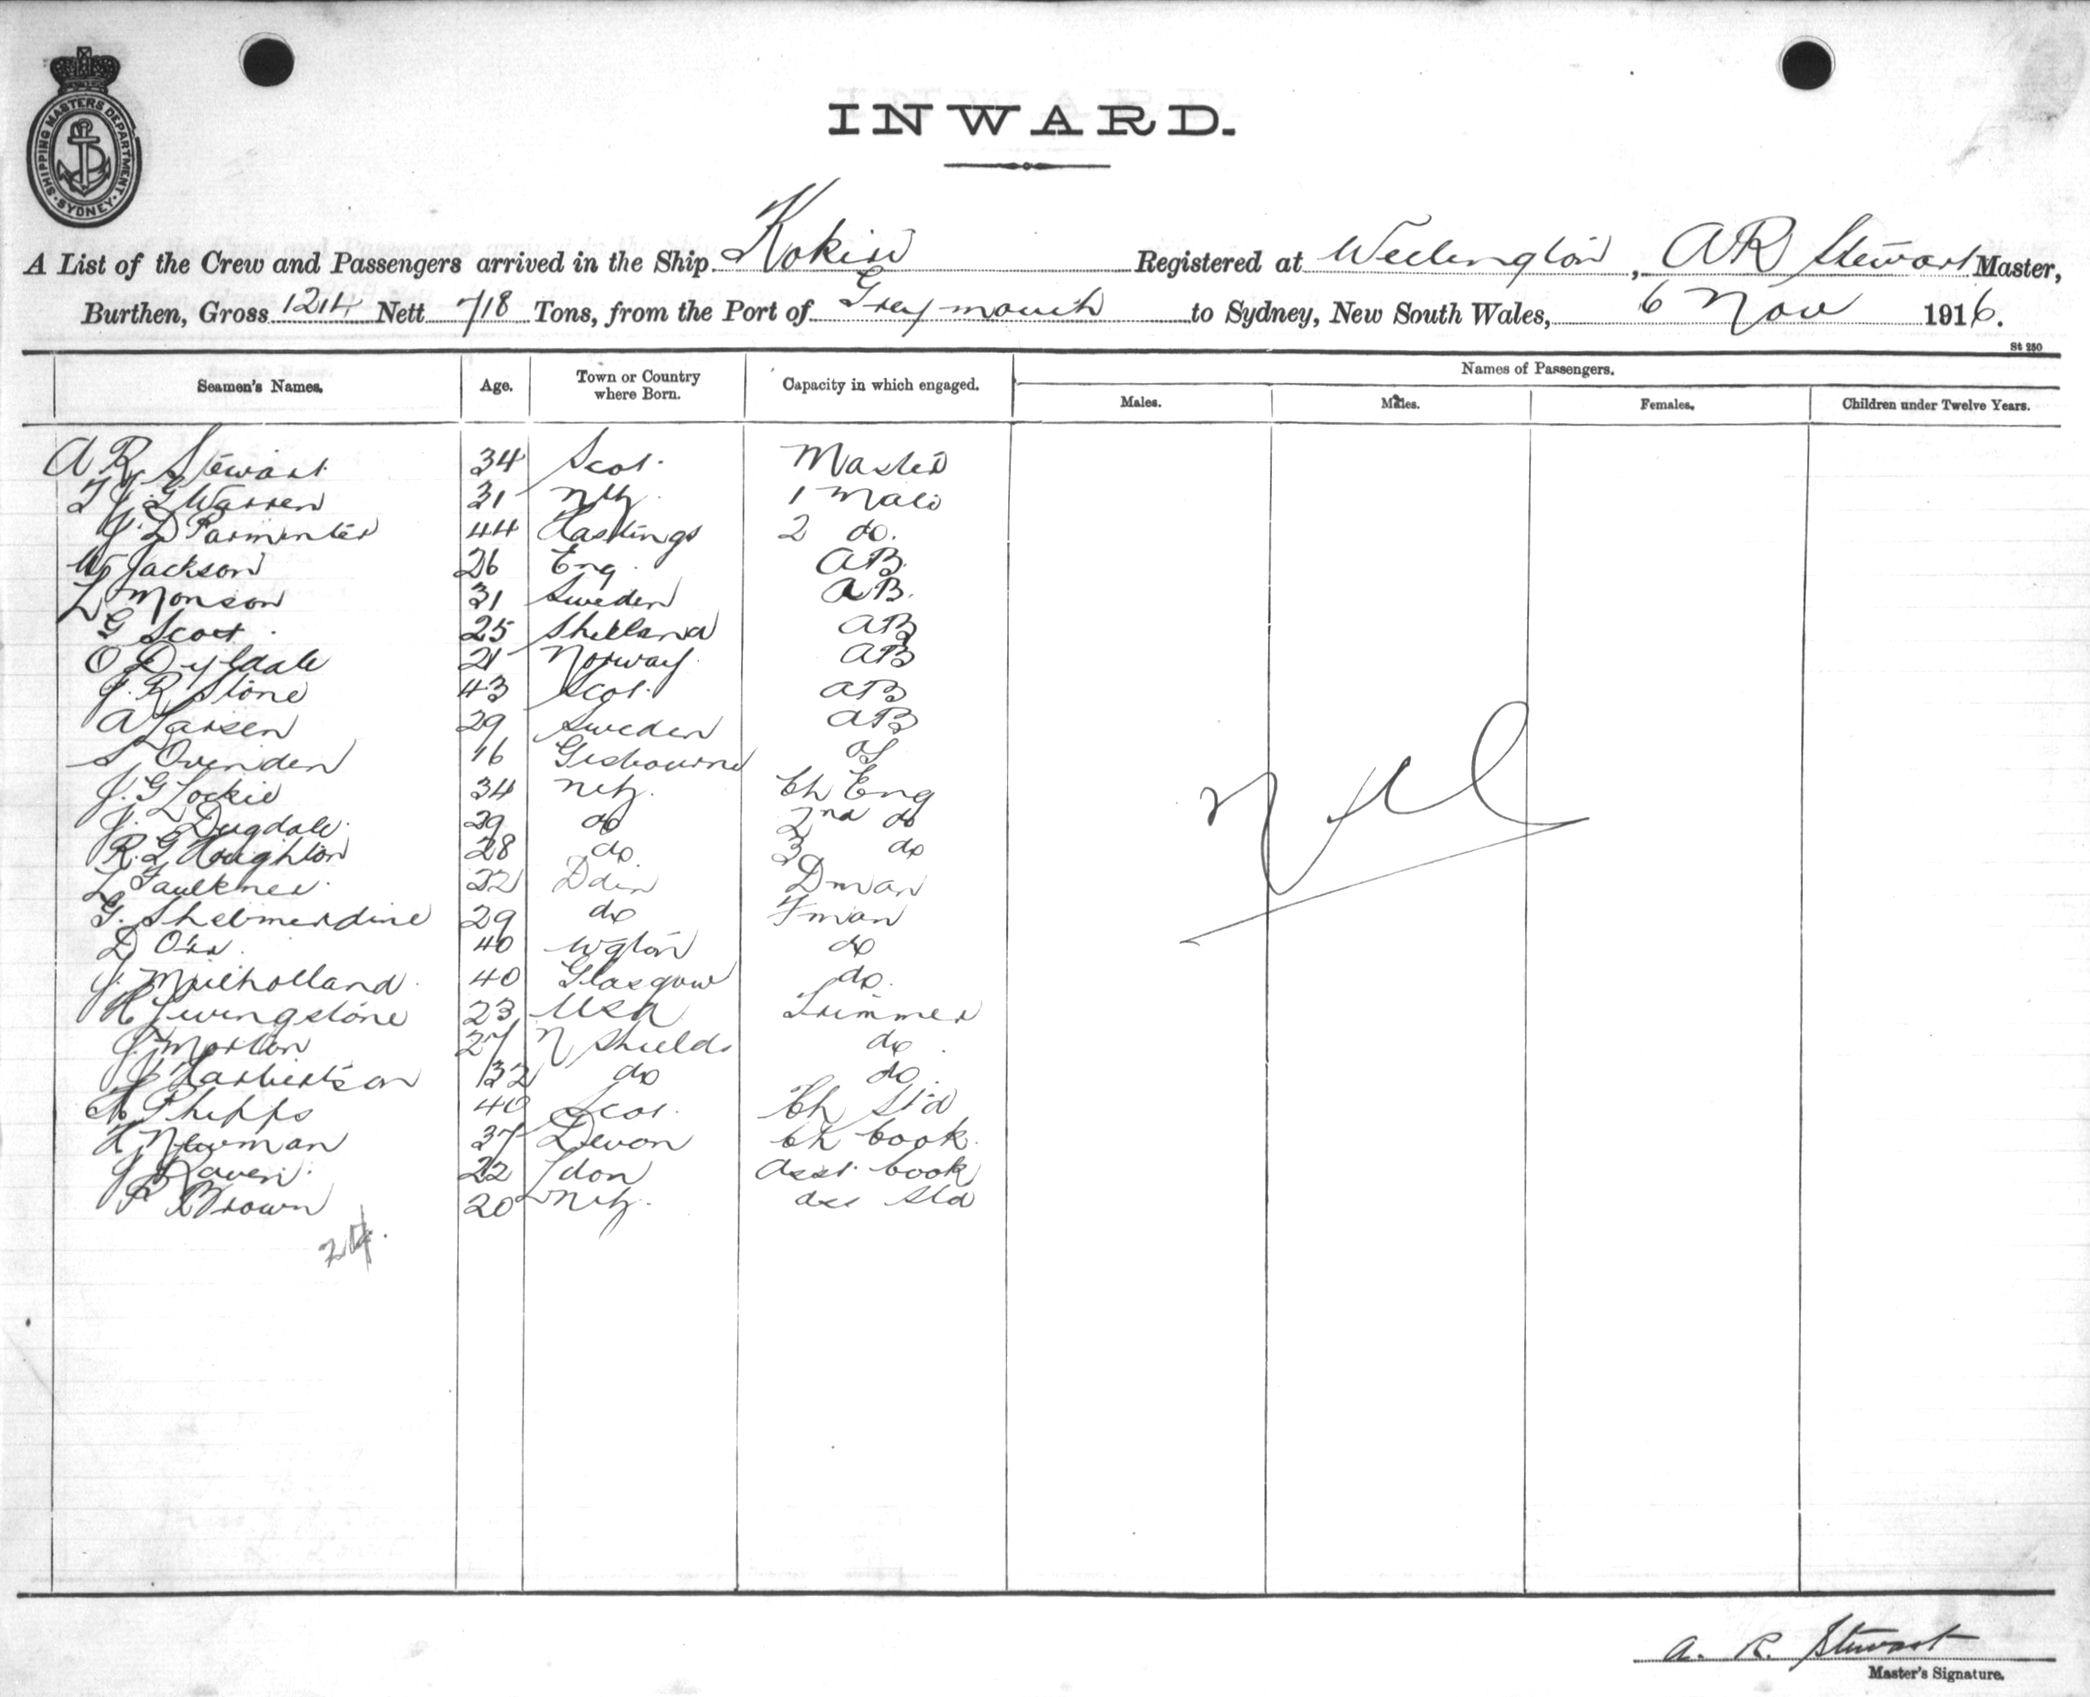 SHIPPING MASTERS DEPARTMENT SYDNEY
INWARD.
A List of the Crew and Passengers arrived in the Ship Registered at Wellington, A R Stewart Master,
Burthen, Gross 1214 Nett 718 Tons, from the Port of Greymouth to Sydney, New South Wales, 6 Nov 1916.
St 250
Seamen's Names. Age. Town or Country where Born. Capacity in which engaged. Names of Passengers.
Males. Males. Females. Children under Twelve Years.
A R Stewart 34 Scot. Master
Warren 31 NZ. 1 Mate
J. D Parmenter 44 Hastings 2 do.
W Jackson 26 Eng. AB.
L Monson 31 Sweden AB.
G Scott 25 Shetland AB
O 21 Norway. AB
J. R Stone 43 Scot. AB
A Larsen 29 Sweden AB
S Ovenden 16 Gisbourne OS
J. G Lockie 34 NZ. Ch Eng
J. Dugdale. 29 do 2nd do
R. G Houghton 28 do 3 do
L Faulkner. 22 Ddin Dman
G. Shelmerdine 29 do Fman
D Orr. 40 Wgton do
J. Mulholland. 40 Glasgow do.
H Livingstone 23 USA Trimmer
J. Morton 27 N Shields do.
J Harbertson 32 do do.
Phipps 40 Scot. Ch Std
H Newman 37 Devon Ch Cook.
J Raven. 22 Ldon Asst. Cook
R Brown 20 NZ. ass Std
24.
Nil
A. R. Stewart
Master's Signature.